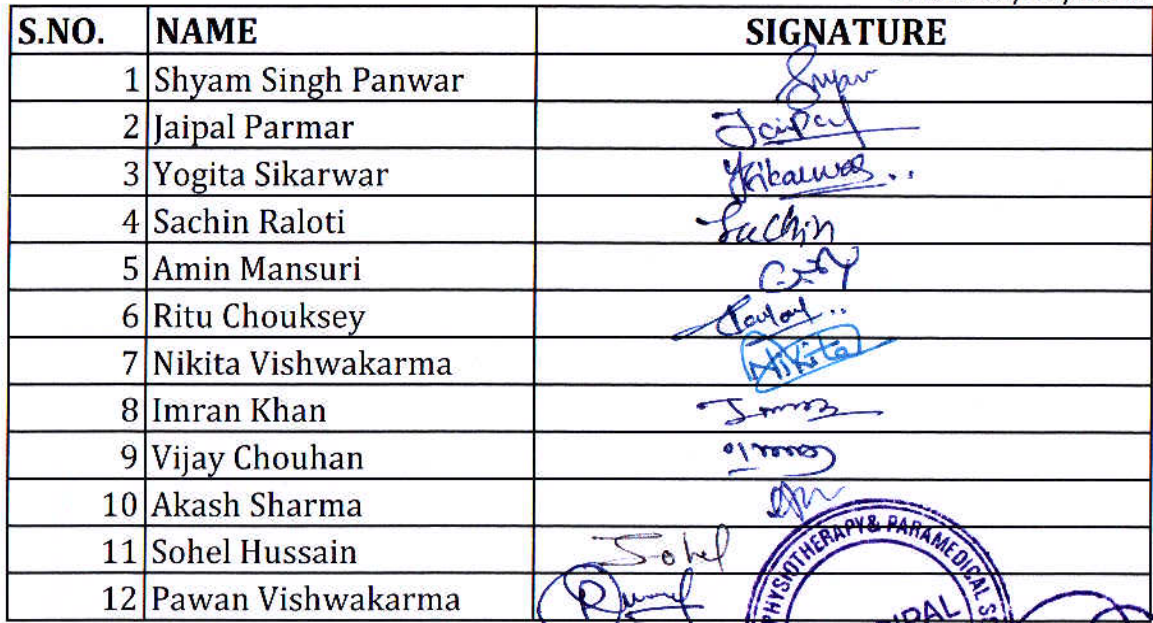 S.NO. NAME SIGNATURE
1 Shyam Singh Panwar Shyam
2 Jaipal Parmar Jaipal
3 Yogita Sikarwar YSikarwar..
4 Sachin Raloti Sachin
5 Amin Mansuri
6 Ritu Chouksey
7 Nikita Vishwakarma Nikita
8 Imran Khan
9 Vijay Chouhan
10 Akash Sharma
11 Sohel Hussain Sohel
12 Pawan Vishwakarma
PHYSIOTHERAPY & PARAMEDICAL